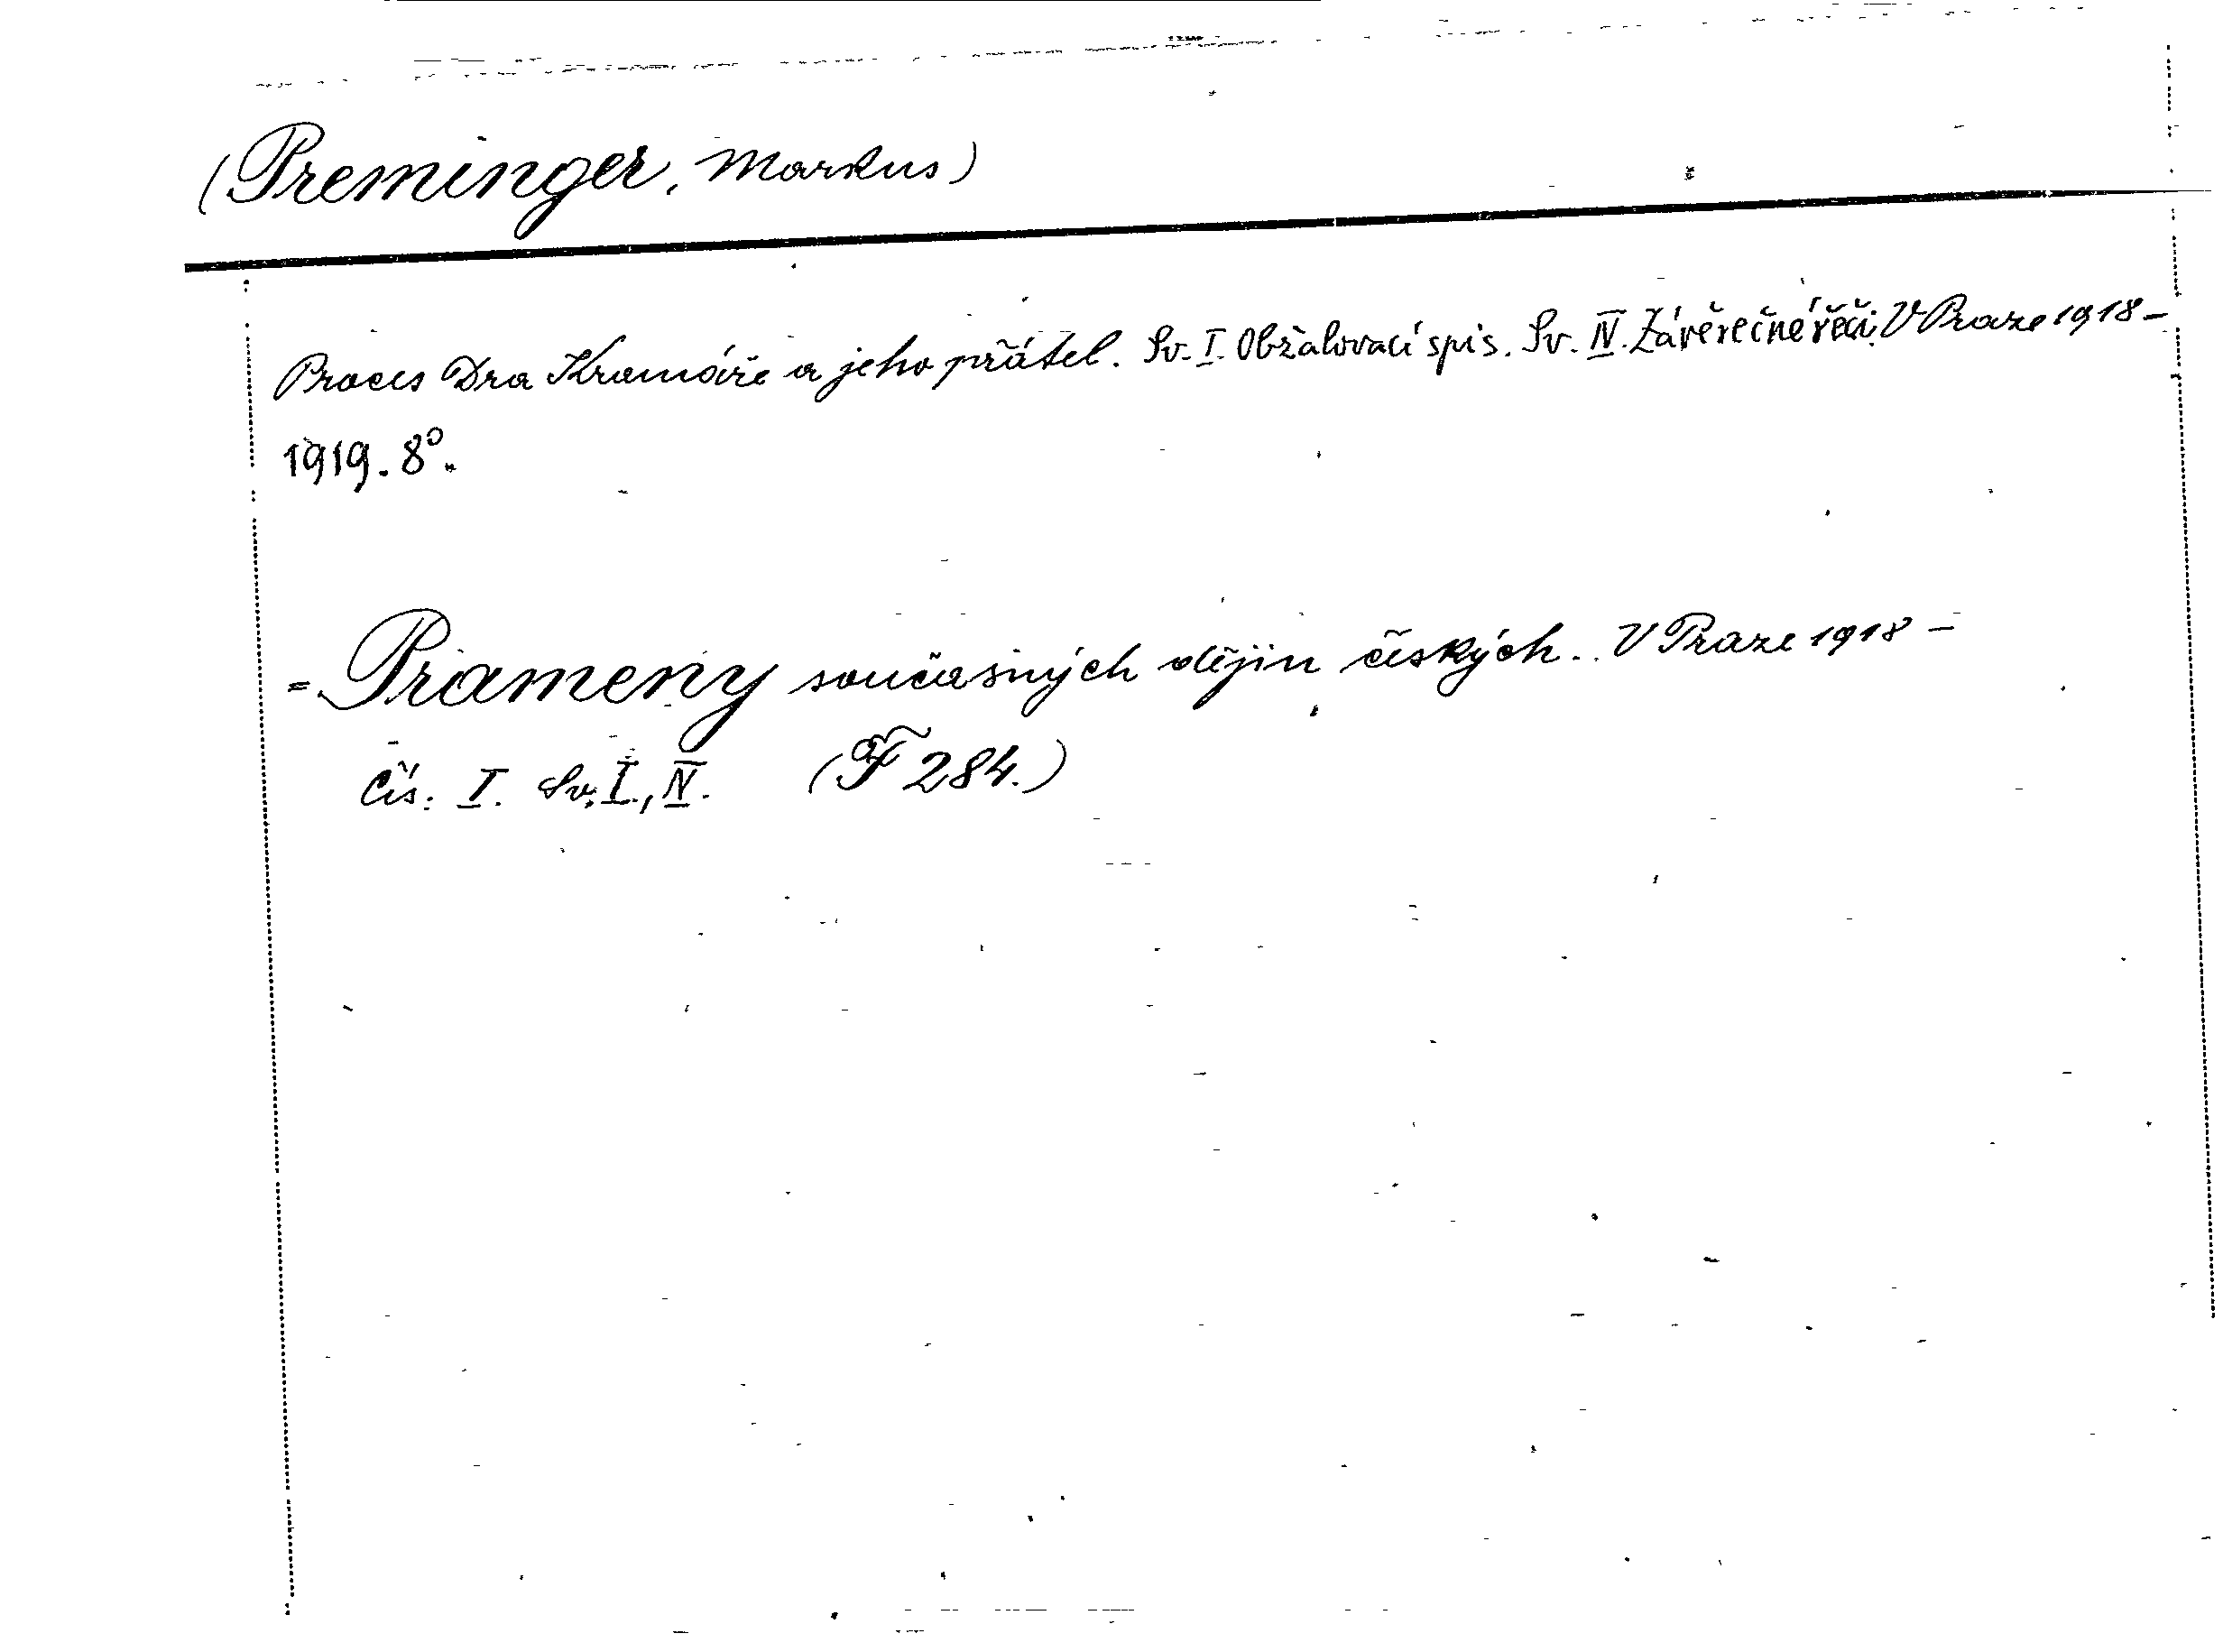 (Preminger, Markus)
Proces Dra Kramáře a jeho přátel. Sv. I. Obžalovací spis. Sv. IV. Závěrečné řeči. V Praze 1918–
1919. 8°.
= Prameny současných dějin českých.. V Praze 1918 –
Čís: I. Sv. I., IV. (F 284.)